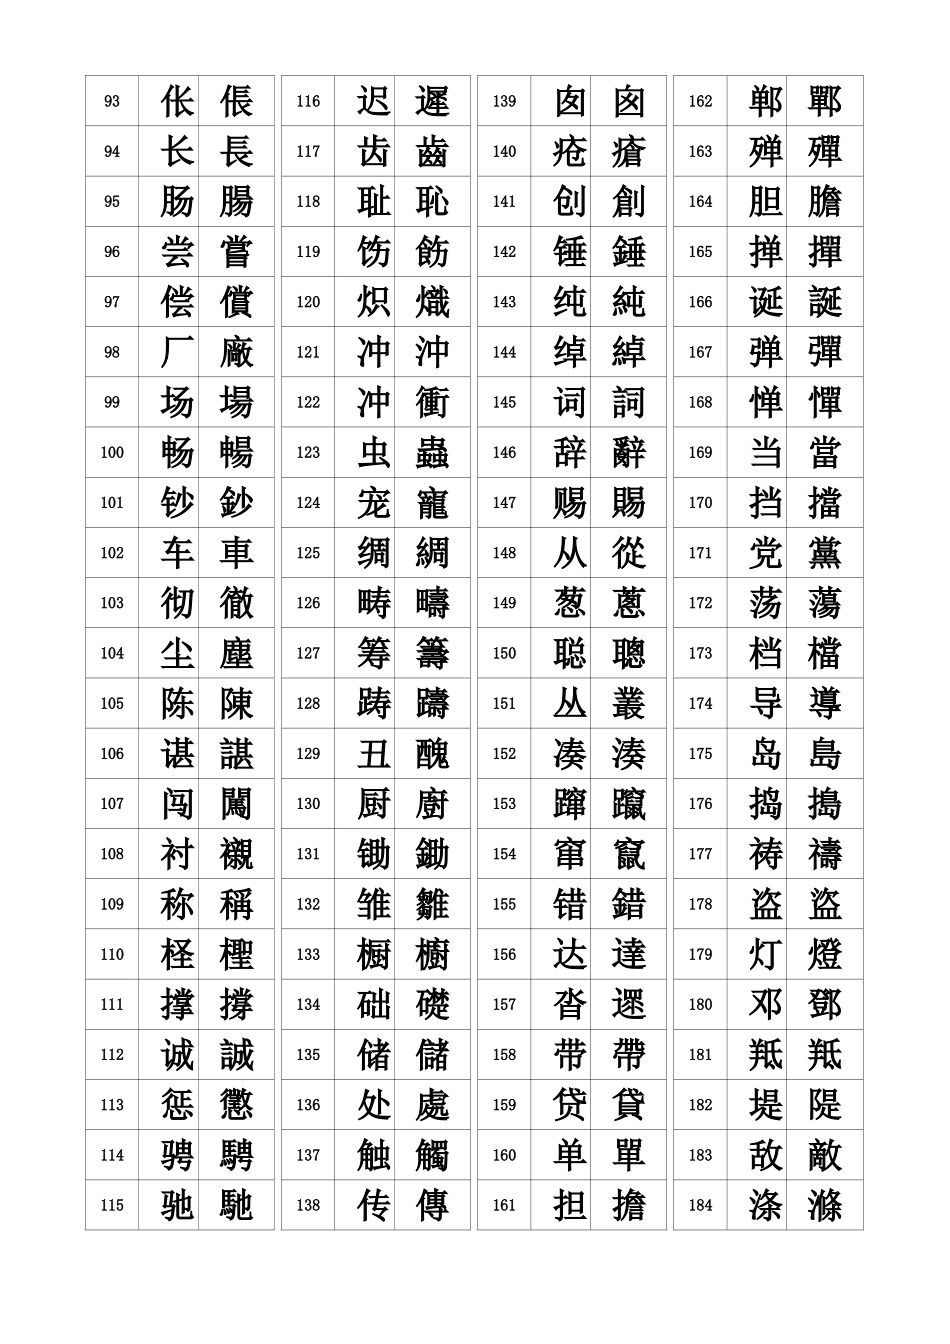 93 伥 倀 116 迟 遲 139 囱 囪 162 郸 鄲
94 长 長 117 齿 齒 140 疮 瘡 163 殚 殫
95 肠 腸 118 耻 恥 141 创 創 164 胆 膽
96 尝 嘗 119 饬 飭 142 锤 錘 165 掸 撣
97 偿 償 120 炽 熾 143 纯 純 166 诞 誕
98 厂 廠 121 冲 沖 144 绰 綽 167 弹 彈
99 场 場 122 冲 衝 145 词 詞 168 惮 憚
100 畅 暢 123 虫 蟲 146 辞 辭 169 当 當
101 钞 鈔 124 宠 寵 147 赐 賜 170 挡 擋
102 车 車 125 绸 綢 148 从 從 171 党 黨
103 彻 徹 126 畴 疇 149 葱 蔥 172 荡 蕩
104 尘 塵 127 筹 籌 150 聪 聰 173 档 檔
105 陈 陳 128 踌 躊 151 丛 叢 174 导 導
106 谌 諶 129 丑 醜 152 凑 湊 175 岛 島
107 闯 闖 130 厨 廚 153 蹿 躥 176 捣 搗
108 衬 襯 131 锄 鋤 154 窜 竄 177 祷 禱
109 称 稱 132 雏 雛 155 错 錯 178 盗 盜
110 柽 檉 133 橱 櫥 156 达 達 179 灯 燈
111 撑 撐 134 础 礎 157 沓 遝 180 邓 鄧
112 诚 誠 135 储 儲 158 带 帶 181 羝 羝
113 惩 懲 136 处 處 159 贷 貸 182 堤 隄
114 骋 騁 137 触 觸 160 单 單 183 敌 敵
115 驰 馳 138 传 傳 161 担 擔 184 涤 滌